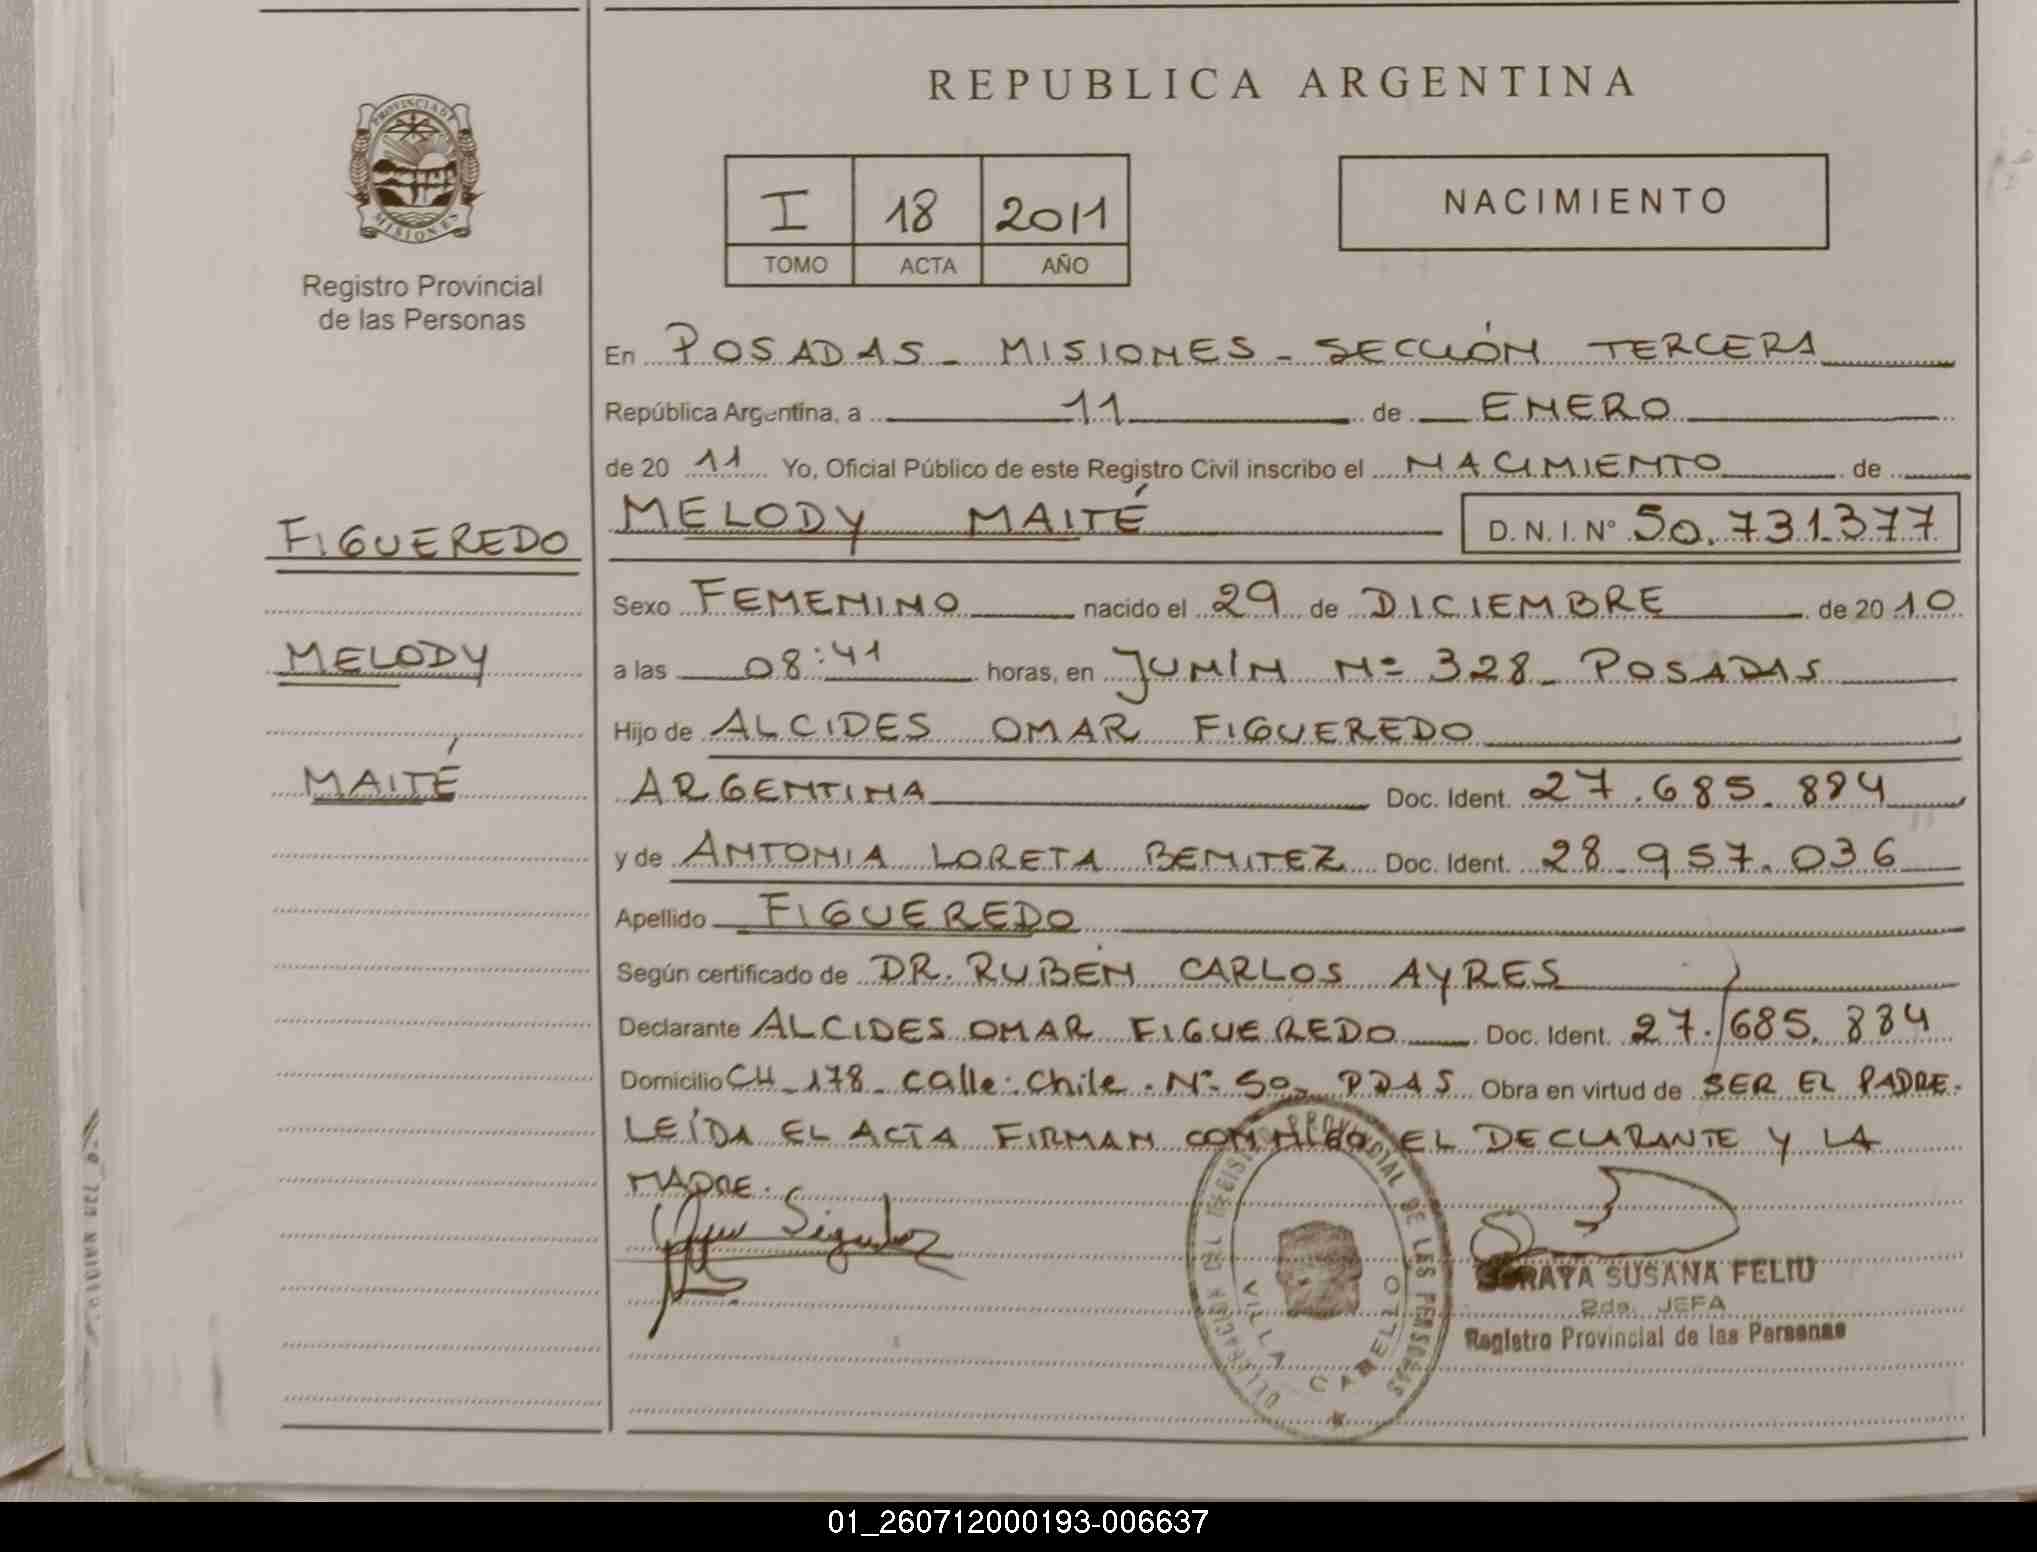 REPUBLICA ARGENTINA
PROVINCIA DE
MISIONES
Registro Provincial
de las Personas
I 18 2011
TOMO ACTA AÑO
NACIMIENTO
En POSADAS - MISIONES - SECCIÓN TERCERA
República Argentina, a 11 de ENERO
de 20 11 Yo, Oficial Público de este Registro Civil inscribo el NACIMIENTO de
FIGUEREDO
MELODY MAITÉ D. N. I. N° 50.731.377
Sexo FEMENINO nacido el 29 de DICIEMBRE de 20 10
MELODY
a las 08:41 horas, en JUNÍN Nº 328 - POSADAS
Hijo de ALCIDES OMAR FIGUEREDO
MAITÉ
ARGENTINA Doc. Ident. 27.685.884
y de ANTONIA LORETA BENITEZ Doc. Ident. 28.957.036
Apellido FIGUEREDO
Según certificado de DR. RUBÉN CARLOS AYRES
Declarante ALCIDES OMAR FIGUEREDO Doc. Ident. 27.685.884
Domicilio CH - 178 - calle: Chile. Nº 50 - PDAS Obra en virtud de SER EL PADRE.
LEÍDA EL ACTA FIRMAN CONMIGO EL DECLARANTE Y LA
MADRE.
PROVINCIAL DE LAS PERSONAS
VILLA CABELLO
SORAYA SUSANA FELIU
2da. JEFA
Registro Provincial de las Personas
01_260712000193-006637